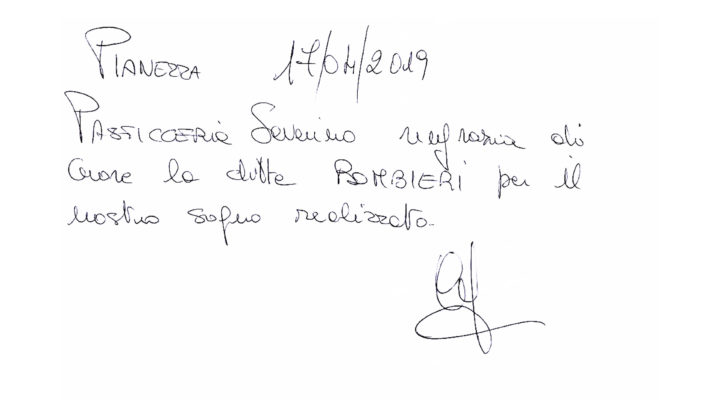 PIANEZZA 17/04/2019
PASTICCERIA Severino ringrazia di
Cuore la ditta BOMBIERI per il
nostro sogno realizzato.